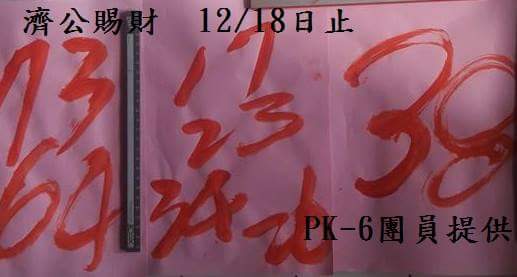 濟公賜財 12/18日止
13
64
17
23
34
26
38
PK-6團員提供